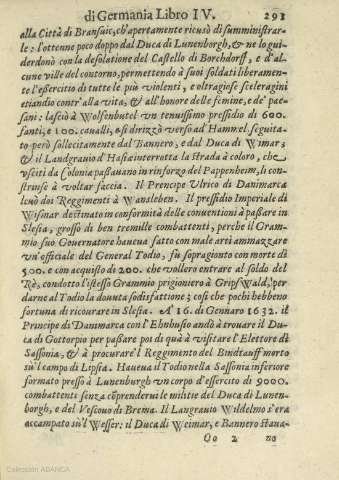 di Germania Libro IV. 291
alla Città di Bransuic, ch'apertamente ricusò di sumministrar-
le: l'ottenne poco doppo dal Duca di Lunenborgh, & ne lo gui-
derdonò con la desolatione del Castello di Borchdorff, e d'al-
cune ville del contorno, permettendo à suoi soldati liberamen-
te l'essercitio di tutte le più violenti, e oltragiose sceleragini
etiandio contr'alla vita, & all'honore delle femine, e de' pae-
sani: lasciò à Wolfenbutel un tenuissimo pressidio di 600.
fanti, e 100. caualli, e si drizzò verso ad Hammel, seguita-
to però sollecitamente dal Bannero, e dal Duca di Wimar;
& il Landgrauio d'Hassia interrotta la strada à coloro, che
usciti da Colonia passauano in rinforzo del Pappenheim, li con-
strinse à voltar faccia. Il Prencipe Ulrico di Danimarca
leuò dos Reggimenti à Wansleben. Il pressidio Imperiale di
Wismar destinato in conformità delle conventioni à passare in
Slesia, grosso di ben tremille combattenti, perche il Gram-
mio suo Governatore haueua fatto con male arti ammazzare
un'officiale del General Todio, fu sopragionto con morte di
500. e con acquisto di 200. che vollero entrare al soldo del
Rè, condotto l'istesso Grammio prigioniero à GripsWald, per
darne al Todio la douuta sodisfattione; così che pochi hebbeno
fortuna di ricourare in Slesia. A' 16. di Gennaro 1632. il
Principe di Danmarca con l'Ehnhusio andò à trouare il Du-
ca di Gottorpio per passare poi di quà à visitare l'Elettore di
Sassonia, & à procurare'l Reggimento del Bindtauff morto
sù'l campo di Lipsia. Haueua il Todio nella Sassonia inferiore
formato presso à Lunenburgh un corpo d'essercito di 9000.
combattenti senza cōprenderui le militie del Duca di Lunen-
borgh, e del Vescouo di Brema. Il Langrauio Wildelmo s'era
accampato sù'l Wesser: il Duca di Weimar, e Bannero staua-
Oo 2 no
Colección ABANCA